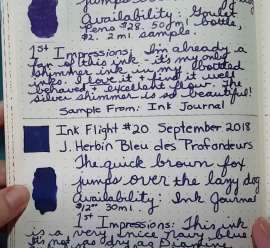 jumps over the lazy dog
Availability: Goulet
Pens $28. 50ml bottle.
$2. 2ml sample.
1st Impressions: I'm already a
fan of this ink - it's my only
shimmer ink in my bottled
inks. I love it + find it well
behaved + excellent flow. The
silver shimmer is so beautiful!
Sample From: Ink Journal
Ink Flight #20 September 2018
J. Herbin Bleu des Profondeurs
The quick brown fox
jumps over the lazy dog
Availability: Ink Journal
30ml.
1st Impressions: This ink
is a very nice navy blue.
It's not as dry as Diamine